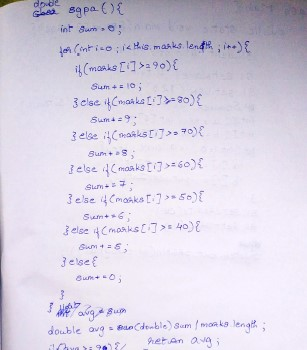 double
sgpa(){
int sum = 0;
for(int i=0; i<this.marks.length; i++){
if(marks[i]>=90){
sum+=10;
}else if(marks[i]>=80){
sum+=9;
}else if(marks[i]>=70){
sum+=8;
}else if(marks[i]>=60){
sum+=7;
}else if(marks[i]>=50){
sum+=6;
}else if(marks[i]>=40){
sum+=5;
}else{
sum+=0;
}
} avg = sum
double avg = (double) sum / marks.length;
if(avg>=90){/ return avg;